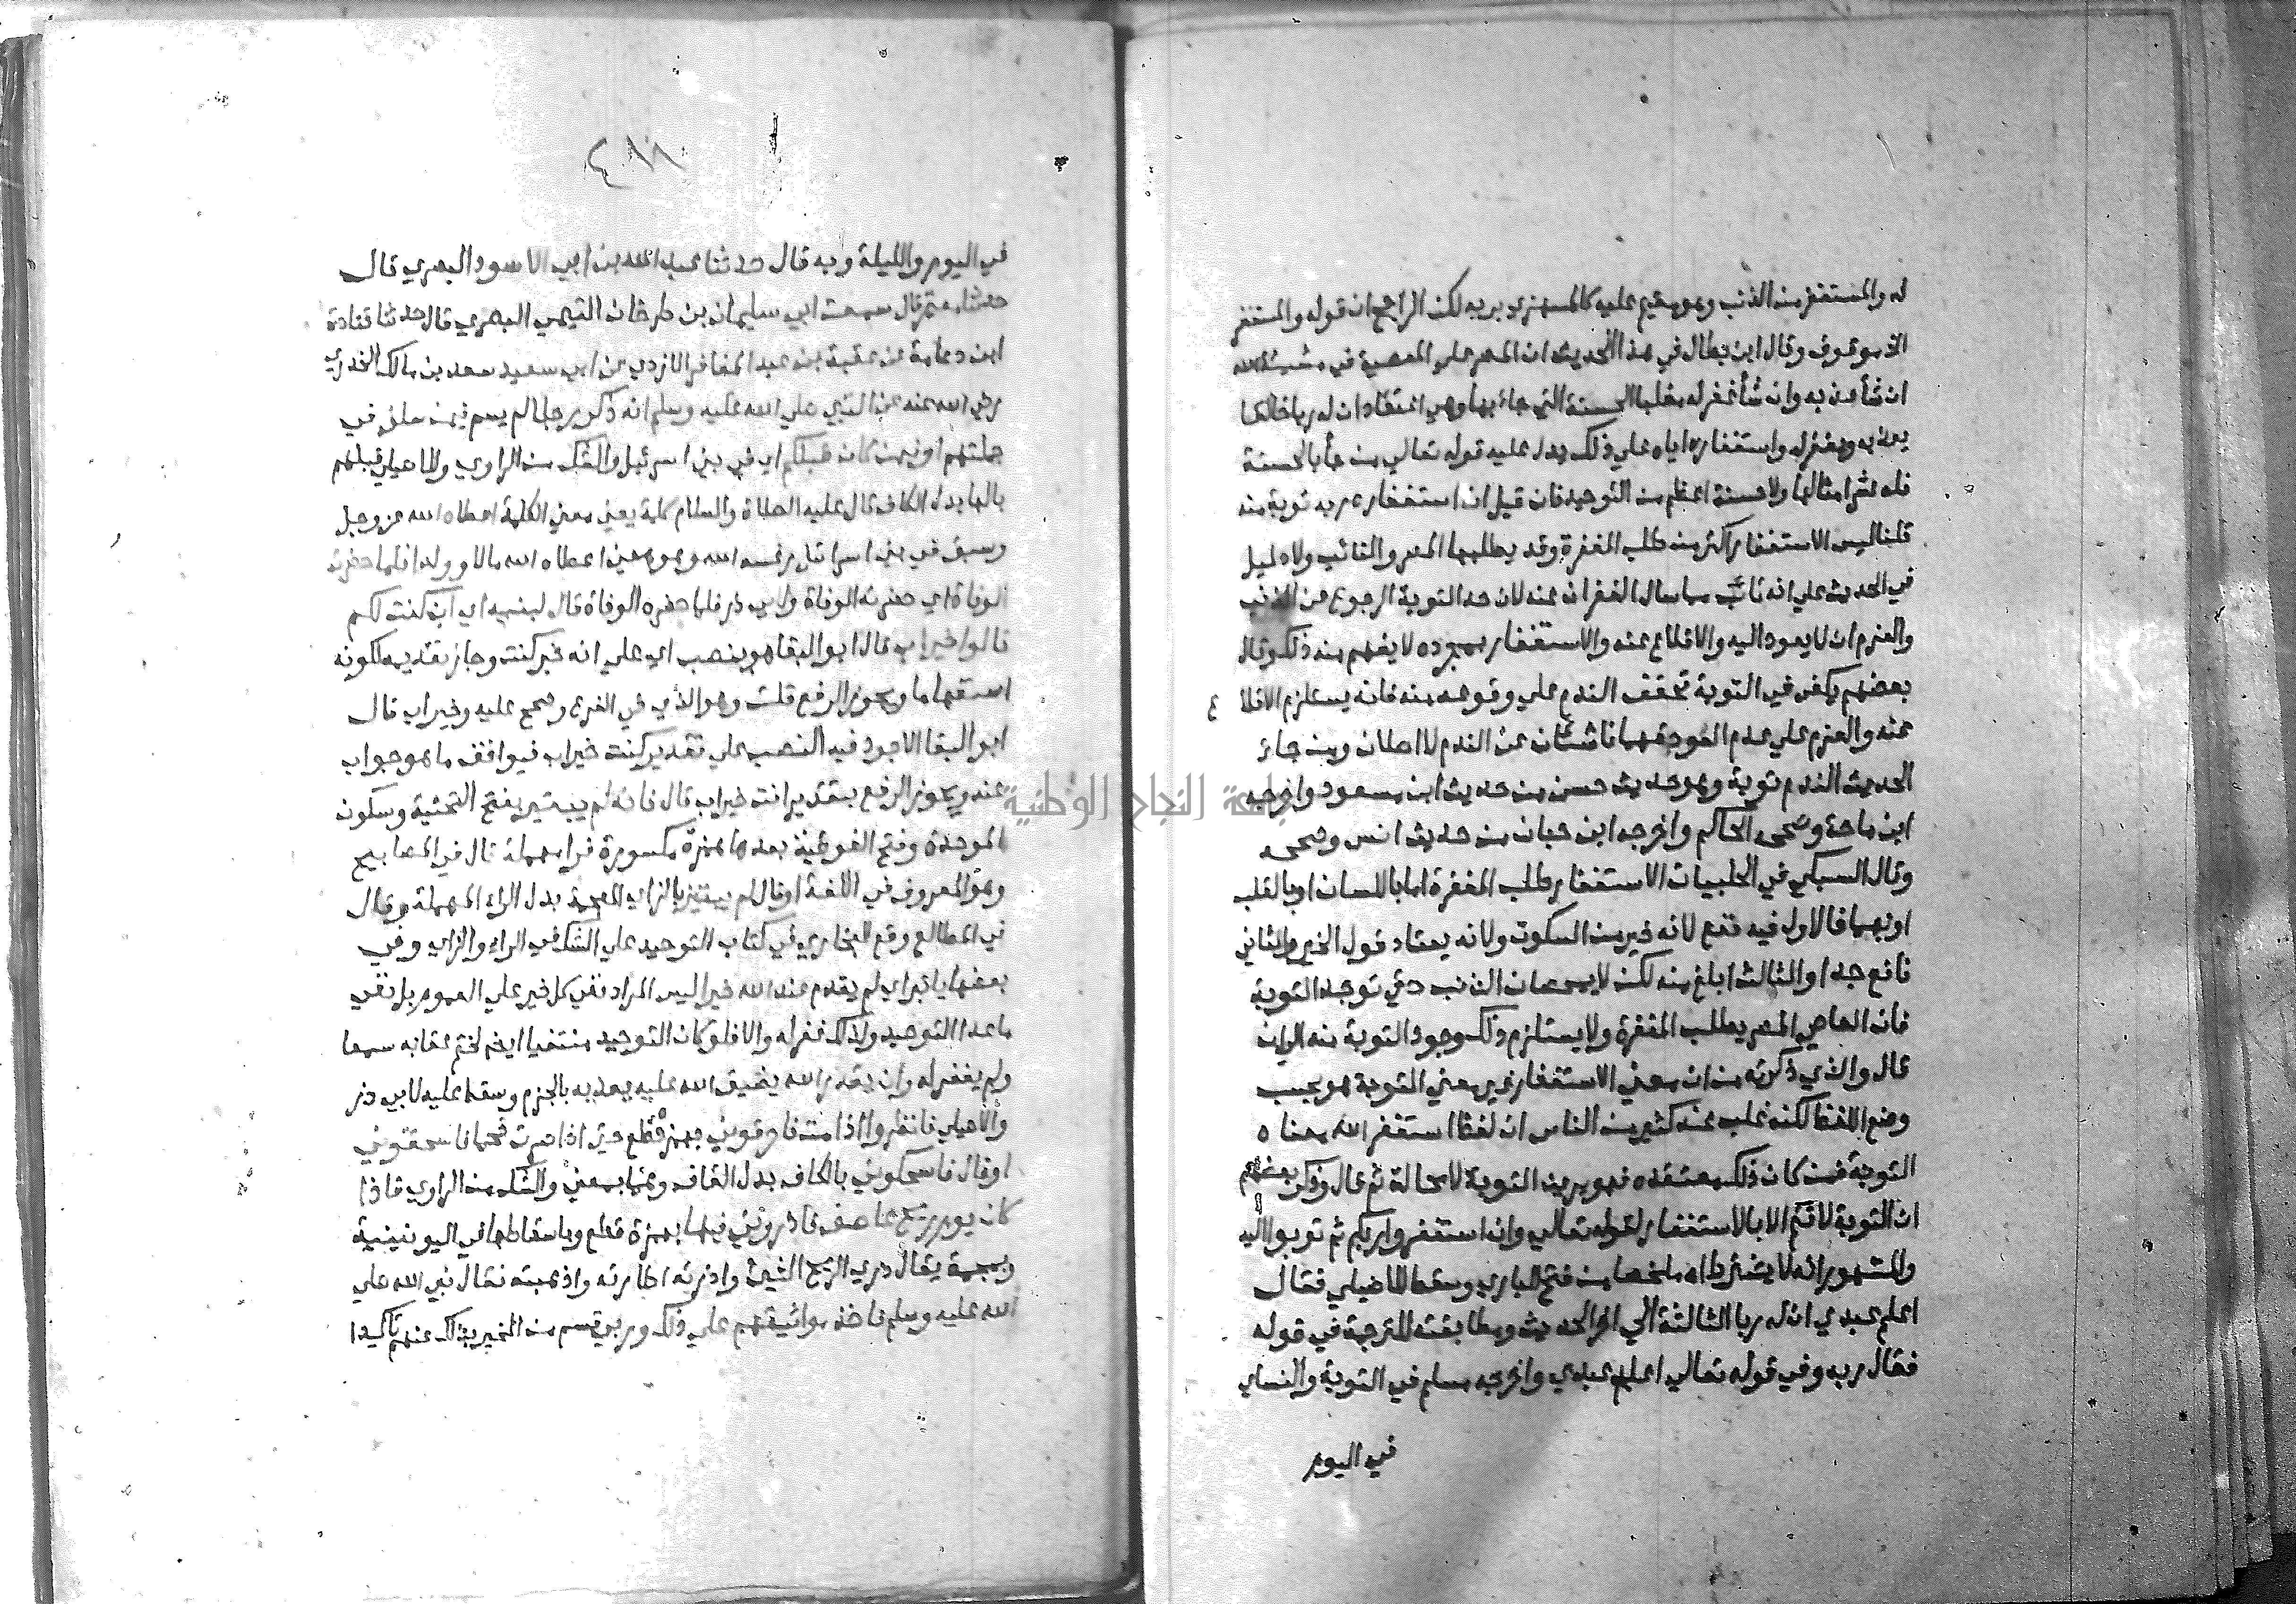 له والمستغفر من الذنب وهو مقيم عليه كالمستهزي بربه لكن الراجح ان قوله والمستغفر
الخ موقوف وقال ابن بطال في هذا الحديث ان المصر علي المعصية في مشيئة الله
ان شأ عذبه وان شأ غفر له مغلبا الحسنة التي جاء بها وهي اعتقاد ان له ربا خالقا
يعذبه ويغفر له واستغفاره اياه علي ذلك يدل عليه قوله تعالي من جأ بالحسنة
فله عشر امثالها ولا حسنة اعظم من التوحيد فان قيل ان استغفاره ربه توبة منه
قلنا ليس الاستغفار اكثر من طلب المغفرة وقد يطلبها المصر والتائب ولا دليل
في الحديث علي انه تائب مما سال الغفران عنه لان حد التوبة الرجوع عن الذنب
والعزم ان لا يعود اليه والاقلاع عنه والاستغفار بمجرده لا يفهم منه ذلك وقال
بعضهم يكفي في التوبة تحقق الندم علي وقوعه منه فانه يستلزم الاقلا ع
عنه والعزم علي عدم العود فهما ناشئان عن الندم لا اصلان ومن جاء
الحديث الندم توبة وهو حديث حسن من حديث ابن مسعود واخرجه
ابن ماجة وصححه الحاكم واخرجه ابن حبان من حديث انس وصححه
وقال السبكي في الحلبيات الاستغفار طلب المغفرة اما باللسان او بالقلب
او بهما فالاول فيه نفع لانه خير من السكوت ولانه يعتاد قول الخير والثاني
نافع جدا والثالث ابلغ منه لكن لا يمحصان الذنب حتي توجد التوبة
فان العاصي المصر يطلب المغفرة ولا يستلزم ذلك وجود التوبة منه الي ان
قال والذي ذكرته من ان معني الاستغفار غير معني التوبة هو بحسب
وضع اللفظ لكنه غلب عند كثير من الناس ان لفظ استغفر الله معناه
التوبة فمن كان ذلك معتقده فهو يريد التوبة لا محالة ثم قال وذكر بعضهم
ان التوبة لا تتم الا بالاستغفار لقوله تعالي وان استغفروا ربكم ثم توبوا اليه
والمشهور انه لا يشترط اه ملخصا من فتح الباري وسقط للاصيلي فقال
اعلم عبدي ان له ربا الثالثة الي اخر الحديث ومطابقته للترجمة في قوله
فقال ربه وفي قوله تعالي اعلم عبدي واخرجه مسلم في التوبة والنساي
في اليوم
٤١١
في اليوم والليلة وبه قال حدثنا عبد الله بن ابي الاسود البصري قال
حدثنا معتمر قال سمعت ابي سليمان بن طرخان التيمي البصري قال حدثنا قتادة
ابن دعامة عن عقبة بن عبد الغافر الازدي عن ابي سعيد سعد بن مالك الخدري
رضي الله عنه عن النبي صلي الله عليه وسلم انه ذكر رجلا لم يسم فيمن سلف في
جملتهم او فيمن كان قبلكم اي في بني اسرئيل والشك من الراوي وللاصيلي قبلهم
بالها بدل الكاف قال عليه الصلاة والسلام كلمة يعني معني الكلمة اعطاه الله عز وجل
وسبق في بني اسرائيل رغسه الله وهو بمعني اعطاه الله مالا وولدا فلما حضرت
الوفاة اي حضرته الوفاة ولابي ذر فلما حضره الوفاة قال لبنيه اي اب كنت لكم
قالوا خير اب قال ابو البقا هو بنصب اي علي انه خبر كنت وجاز تقديمه لكونه
استفهاما ويجوز الرفع قلت وهو الذي في الفرع وصحح عليه وخير اب قال
ابو البقا الاجود فيه النصب علي تقدير كنت خير اب فيوافق ما هو جواب
عنه ويجوز الرفع بتقدير انت خير اب قال فانه لم يبتئر بفتح التحتية وسكون
الموحدة وفتح الفوقية بعدها همزة مكسورة فرا مهملة قال في المصابيح
وهو المعروف في اللغة او قال لم يبتئز بالزاي المعجمة بدل الراء المهملة وقال
في المطالع وقع للبخاري في كتاب التوحيد علي الشك في الراء والزاي وفي
بعضها يابتر اي لم يقدم عند الله خيرا ليس المراد نفي كل خير علي العموم بل نفي
ما عدا التوحيد ولذلك غفر له والا فلو كان التوحيد منتفيا ايضا لختم عقابه سمعا
ولم يغفر له وان يقدر الله يضيق الله عليه يعذبه بالجزم وسقط عليه لابي ذر
والاصيلي فانظروا اذا مت فاحرقوني بهمز قطع حتي اذا صرت فحما فاسحقوني
او قال فاسحكوني بالكاف بدل القاف وهما بمعني والشك من الراوي فاذا
كان يوم ريح عاصف فاذروني فيها بهمزة قطع وباسقاطها في اليونينية
وبمعجمة يقال ذري الريح الشئ واذرته اطارته واذهبته فقال نبي الله صلي
الله عليه وسلم فاخذ مواثيقهم علي ذلك وربي قسم من المخبر بذلك عنهم تأكيدا
جامعة النجاح الوطنية